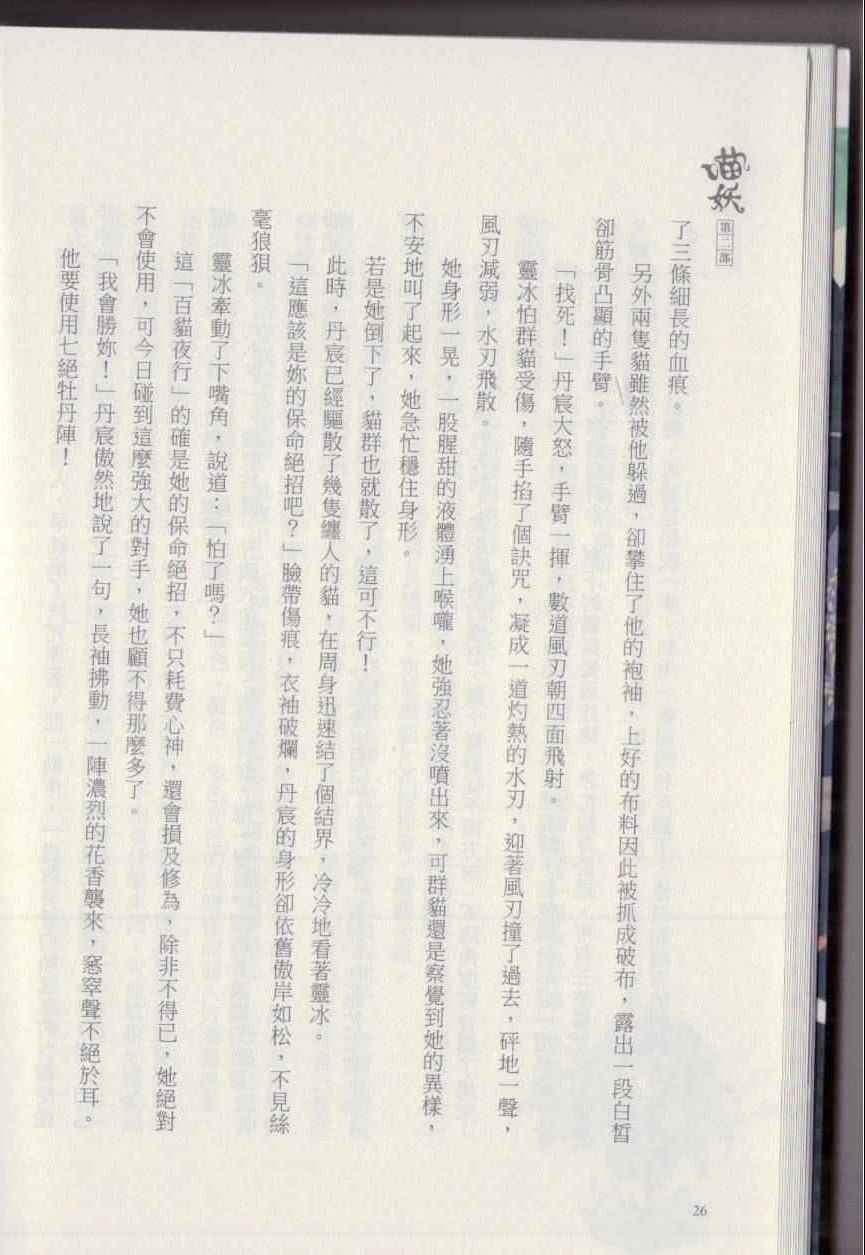 喵妖
第二部
了三條細長的血痕。
另外兩隻貓雖然被他躲過，卻攀住了他的袍袖，上好的布料因此被抓成破布，露出一段白皙
卻筋骨凸顯的手臂。
「找死！」丹宸大怒，手臂一揮，數道風刃朝四面飛射。
靈冰怕群貓受傷，隨手掐了個訣咒，凝成一道灼熱的水刃，迎著風刃撞了過去，砰地一聲，
風刃減弱，水刃飛散。
她身形一晃，一股腥甜的液體湧上喉嚨，她強忍著沒噴出來，可群貓還是察覺到她的異樣，
不安地叫了起來，她急忙穩住身形。
若是她倒下了，貓群也就散了，這可不行！
此時，丹宸已經驅散了幾隻纏人的貓，在周身迅速結了個結界，冷冷地看著靈冰。
「這應該是妳的保命絕招吧？」臉帶傷痕，衣袖破爛，丹宸的身形卻依舊傲岸如松，不見絲
毫狼狽。
靈冰牽動了下嘴角，說道：「怕了嗎？」
這「百貓夜行」的確是她的保命絕招，不只耗費心神，還會損及修為，除非不得已，她絕對
不會使用，可今日碰到這麼強大的對手，她也顧不得那麼多了。
「我會勝妳！」丹宸傲然地說了一句，長袖拂動，一陣濃烈的花香襲來，窸窣聲不絕於耳。
他要使用七絕牡丹陣！
26